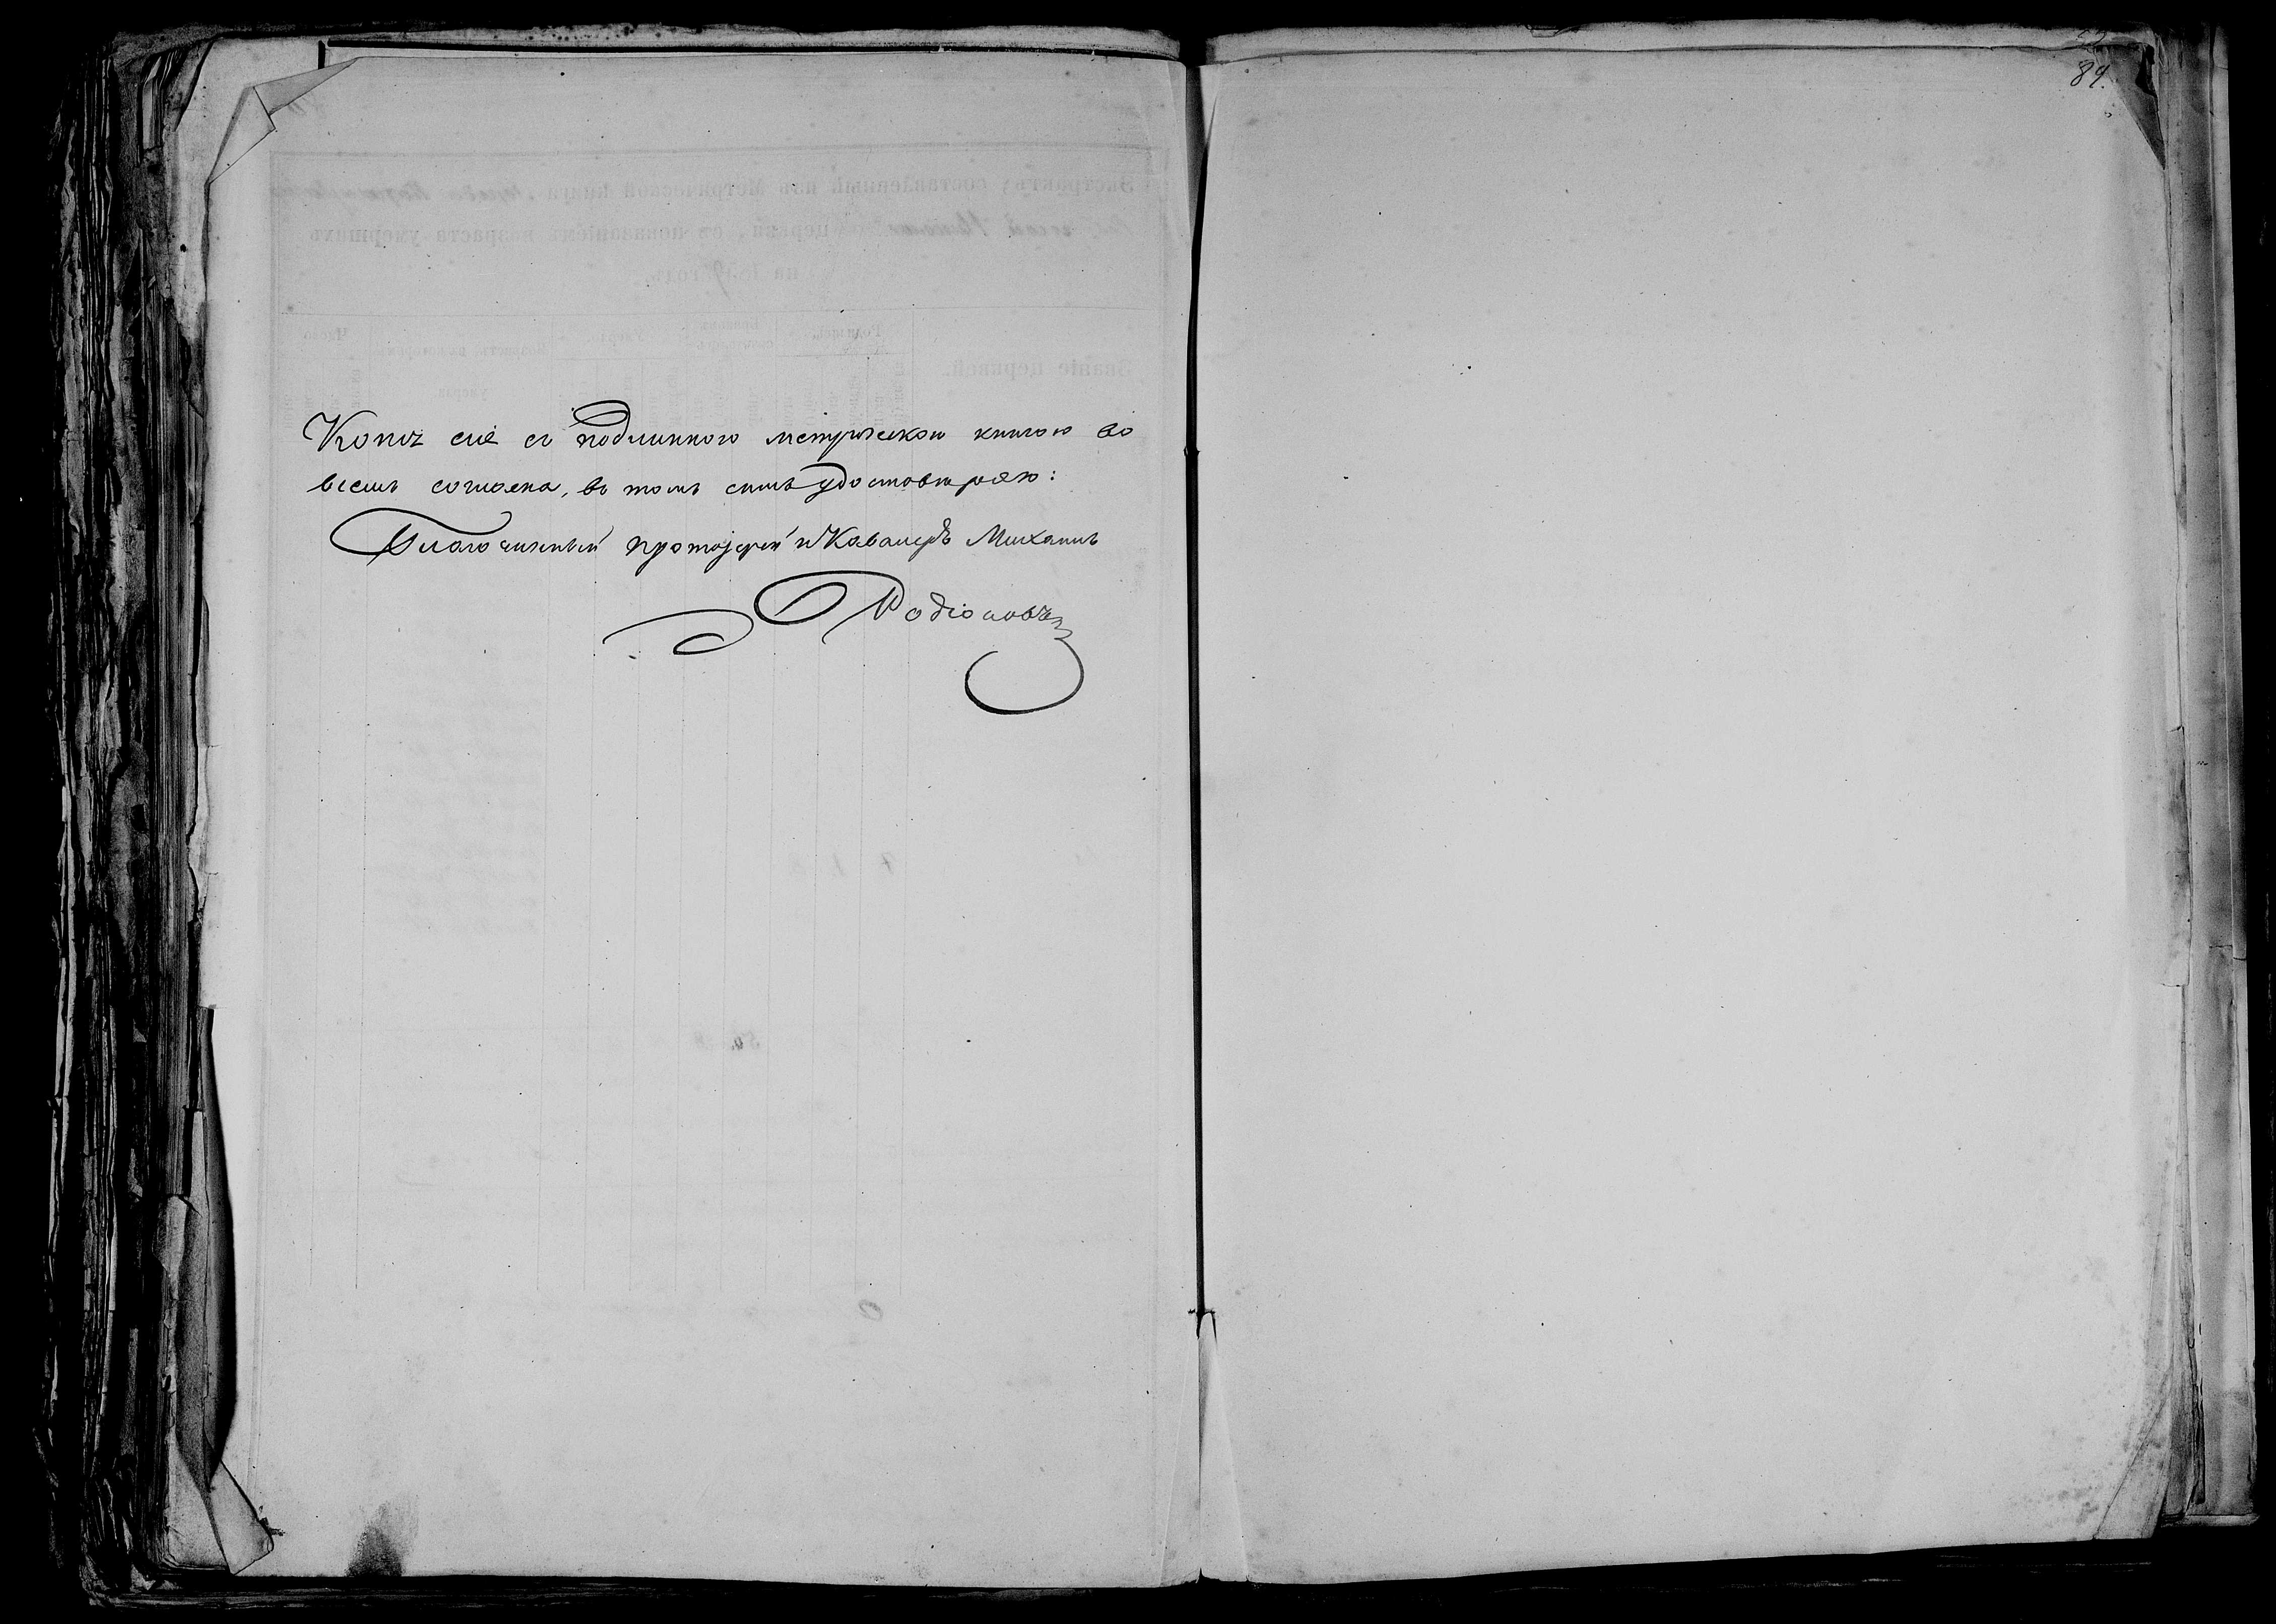 Копія сiе съ подлинною метрическою книгою во
всемъ согласна, въ томъ симъ удостовѣряю:
Благочинный протоіерей и Кавалеръ Михаилъ
Родіоновъ
89.